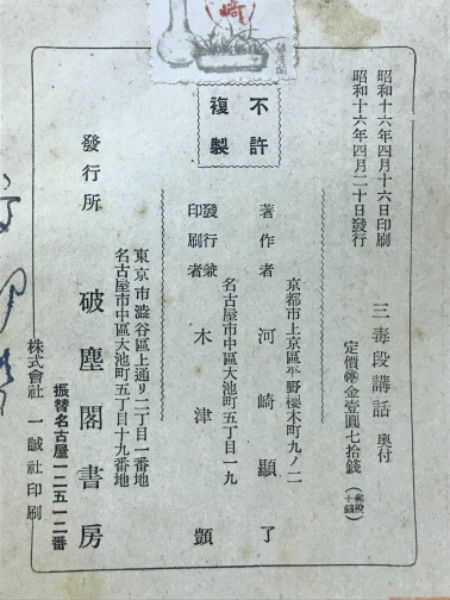 昭和十六年四月十六日印刷
昭和十六年四月二十日發行
三毒段講話 奥付
定價 金壹圓七拾錢
不許
複製
京都市上京區平野櫻木町九ノ二
著作者 河崎顯了
名古屋市中區大池町五丁目一九
發行兼
印刷者 木津顫
東京市澁谷區上通リ二丁目一番地
名古屋市中區大池町五丁目十九番地
發行所 破塵閣書房
振替名古屋一二五一二番
株式會社 一誠社印刷